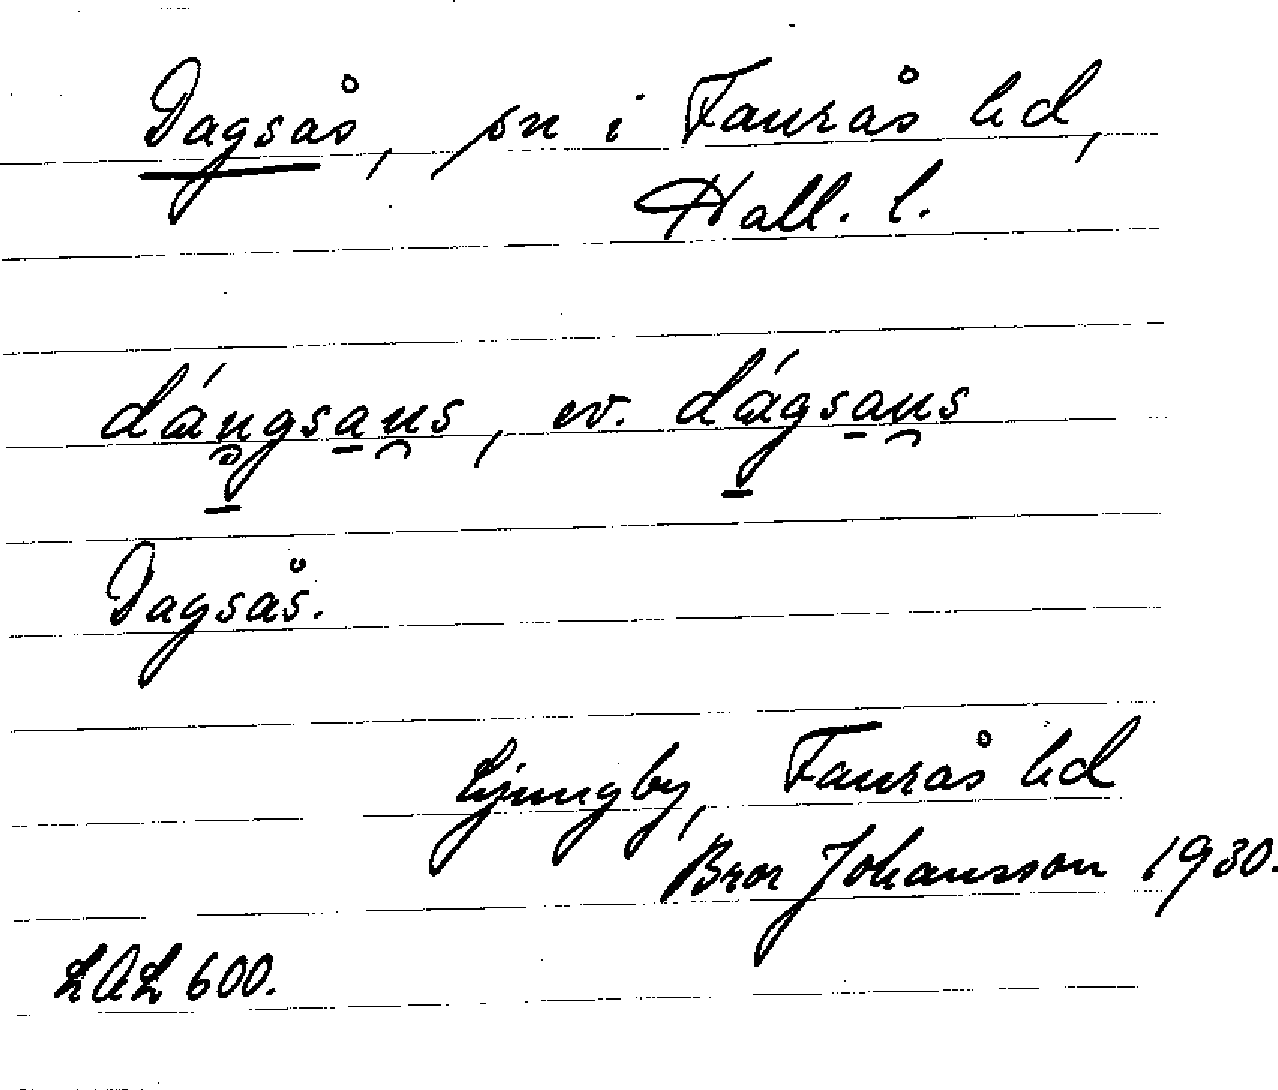 Dagsås, sn i Faurås hd,
Hall. l.
dángsaus, ev. dágsaus
Dagsås.
Ljungby, Faurås hd
Bror Johansson 1930.
LAL 600.